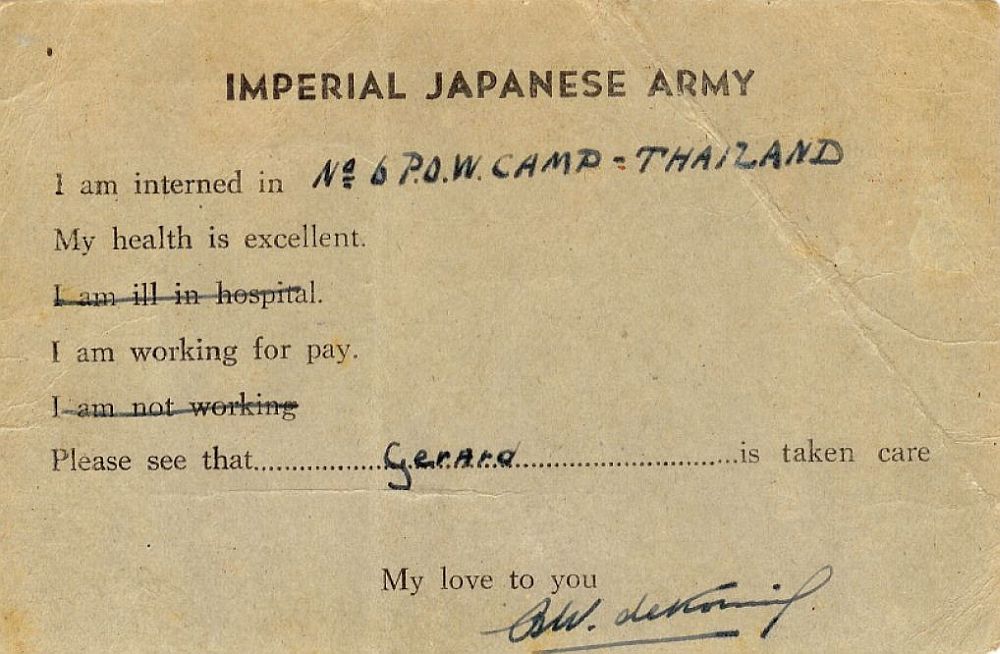 IMPERIAL JAPANESE ARMY
I am interned in Nº 6 P.O.W. CAMP = THAILAND
My health is excellent.
I am ill in hospital.
I am working for pay.
I am not working
Please see that..................Gerard..............................is taken care
My love to you
de Koning